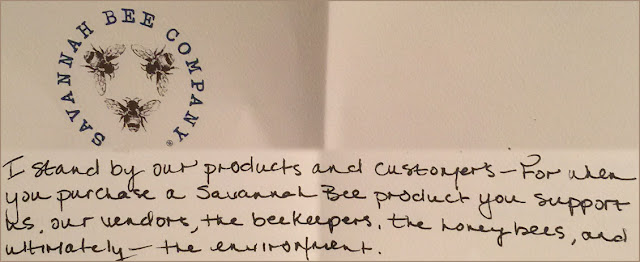 SAVANNAH BEE COMPANY ®
I stand by our products and customers – For when
you purchase a Savannah Bee product you support
us, our vendors, the beekeepers, the honeybees, and
ultimately – the environment.